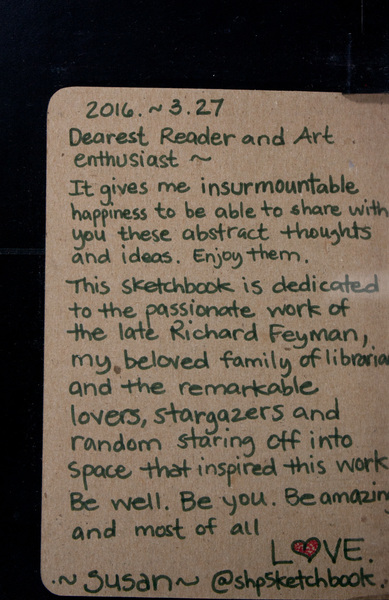 2016. ~ 3.27
Dearest Reader and Art
enthusiast ~
It gives me insurmountable
happiness to be able to share with
you these abstract thoughts
and ideas. Enjoy them.
This sketchbook is dedicated
to the passionate work of
the late Richard Feyman,
my beloved family of libraria
and the remarkable
lovers, stargazers and
random staring off into
space that inspired this work
Be well. Be you. Be amazin
and most of all
LOVE.
~ Susan ~ @shpSketchbook.